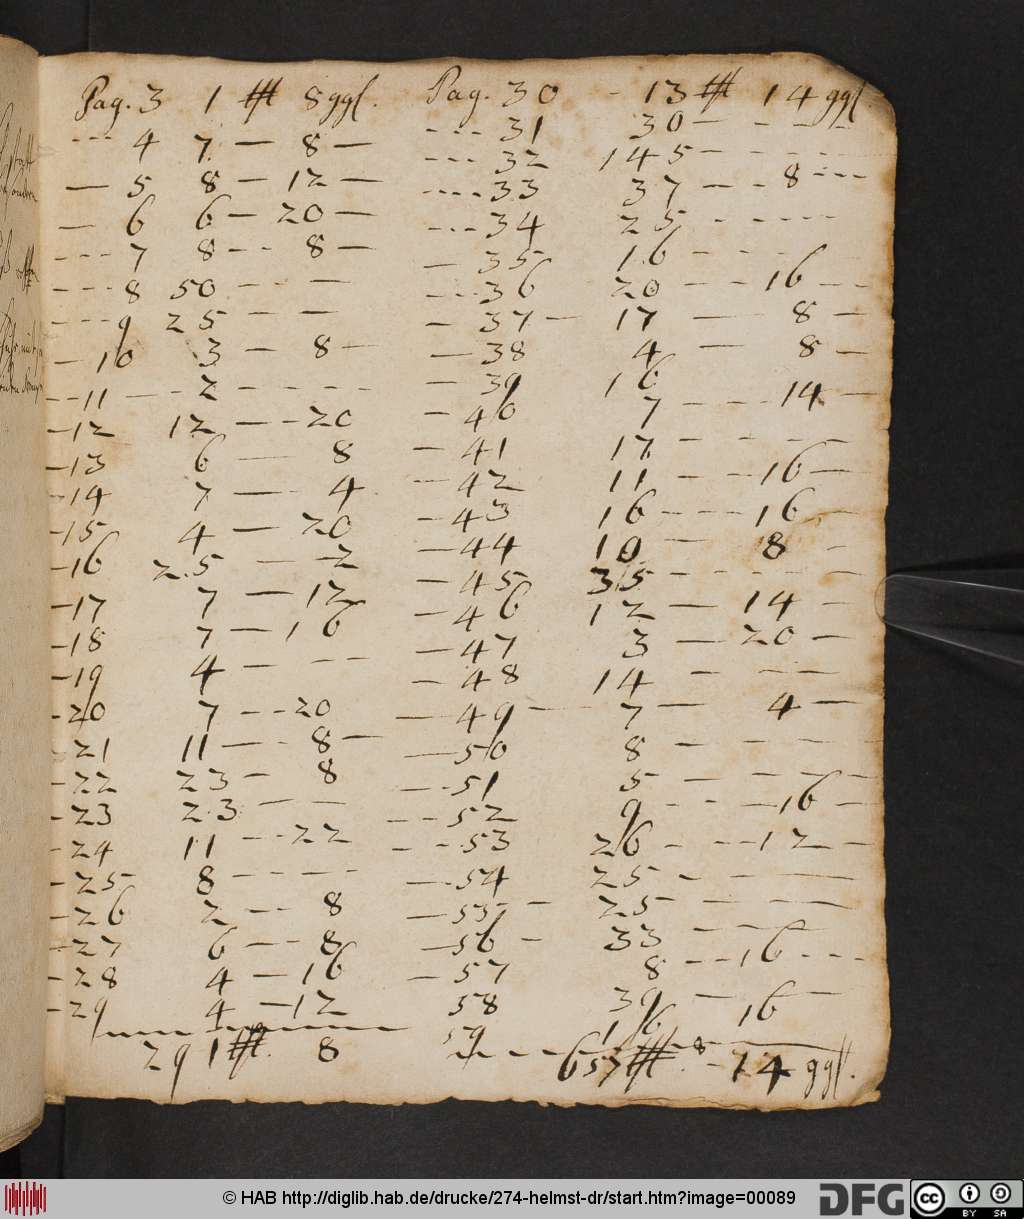 Pag. 3 1 thl 8 ggl.
--- 4 7 — 8 —
— 5 8 — 12 —
— 6 6 — 20 —
--- 7 8 --- 8 —
--- 8 50 --- —
--- 9 25 — —
— 10 3 — 8 —
-- 11 --- 2 - - - - -
— 12 12 — - 20
— 13 6 — 8
— 14 7 — - 4
— 15 4 — 20
— 16 25 — — 2
— 17 7 — 12
— 18 7 — - 16
— 19 4 — - - -
— 20 7 - - 20
— 21 11 — - 8 —
— 22 23 — 8
— 23 23 — —
— 24 11 - - 22
— 25 8 - - - - -
— 26 2 — - 8
— 27 6 — - 8
— 28 4 — 16
— 29 4 — 12
291 thl. 8
Pag. 30 - 13 thl 14 ggl
--- 31 30 — - - - -
--- 32 145 — - - - -
--- 33 37 — - 8 ---
--- 34 25 - - - - -
— 35 16 - - - - -
--- 36 20 — - 16 - -
— 37 — 17 — 8 —
— 38 4 — 8 —
— 39 16
— 40 7 — - - 14 —
— 41 17 - - - - -
— 42 11 — - - 16 —
— 43 16 - - - 16 —
— 44 10 — 8 -
— 45 35 - - - - -
— 46 12 — 14 —
— 47 3 — 20 —
— 48 14 — - - - -
— 49 — 7 — 4 —
— 50 8 — - - - -
— 51 5 — - - - -
--- 52 9 - - - 16 —
- - - 53 26 - - - 12 —
— 54 25 - — —
— 55 — 25 — - - —
— 56 — 33 — - - - -
— 57 8 - - - 16 ---
58 39 — — 16 —
59 16 — 8
657 thl. - 14 ggl.
© HAB http://diglib.hab.de/drucke/274-helmst-dr/start.htm?image=00089
DFG
cc
BY SA